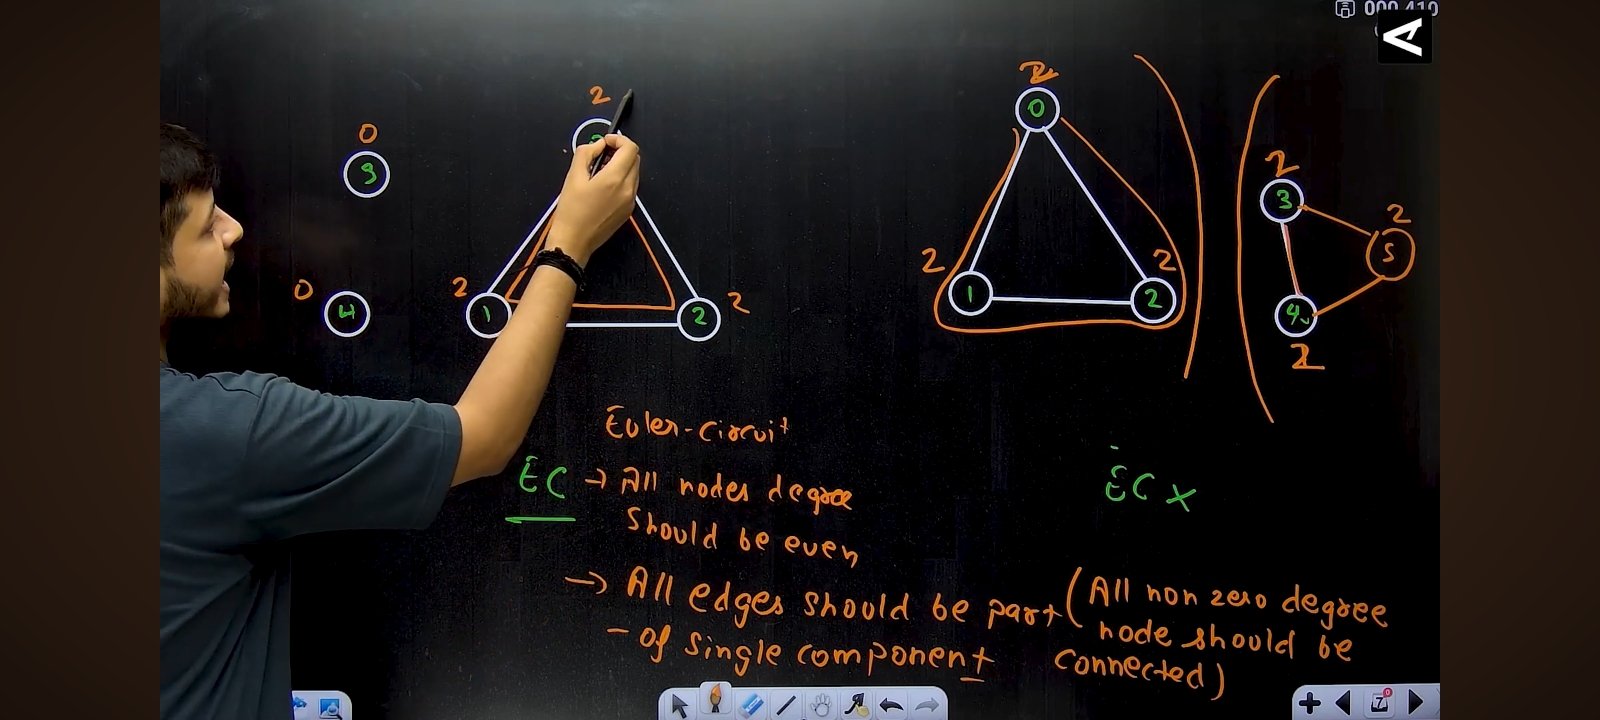 000 410
0
3
0
4
2
2
1
2
2
2
0
2
1
2
2
2
3
2
5
4
2
Euler-circuit
EC → All nodes degree
should be even,
EC x
→ All edges should be part
- of single component
(All non zero degree
node should be
connected)
7
0